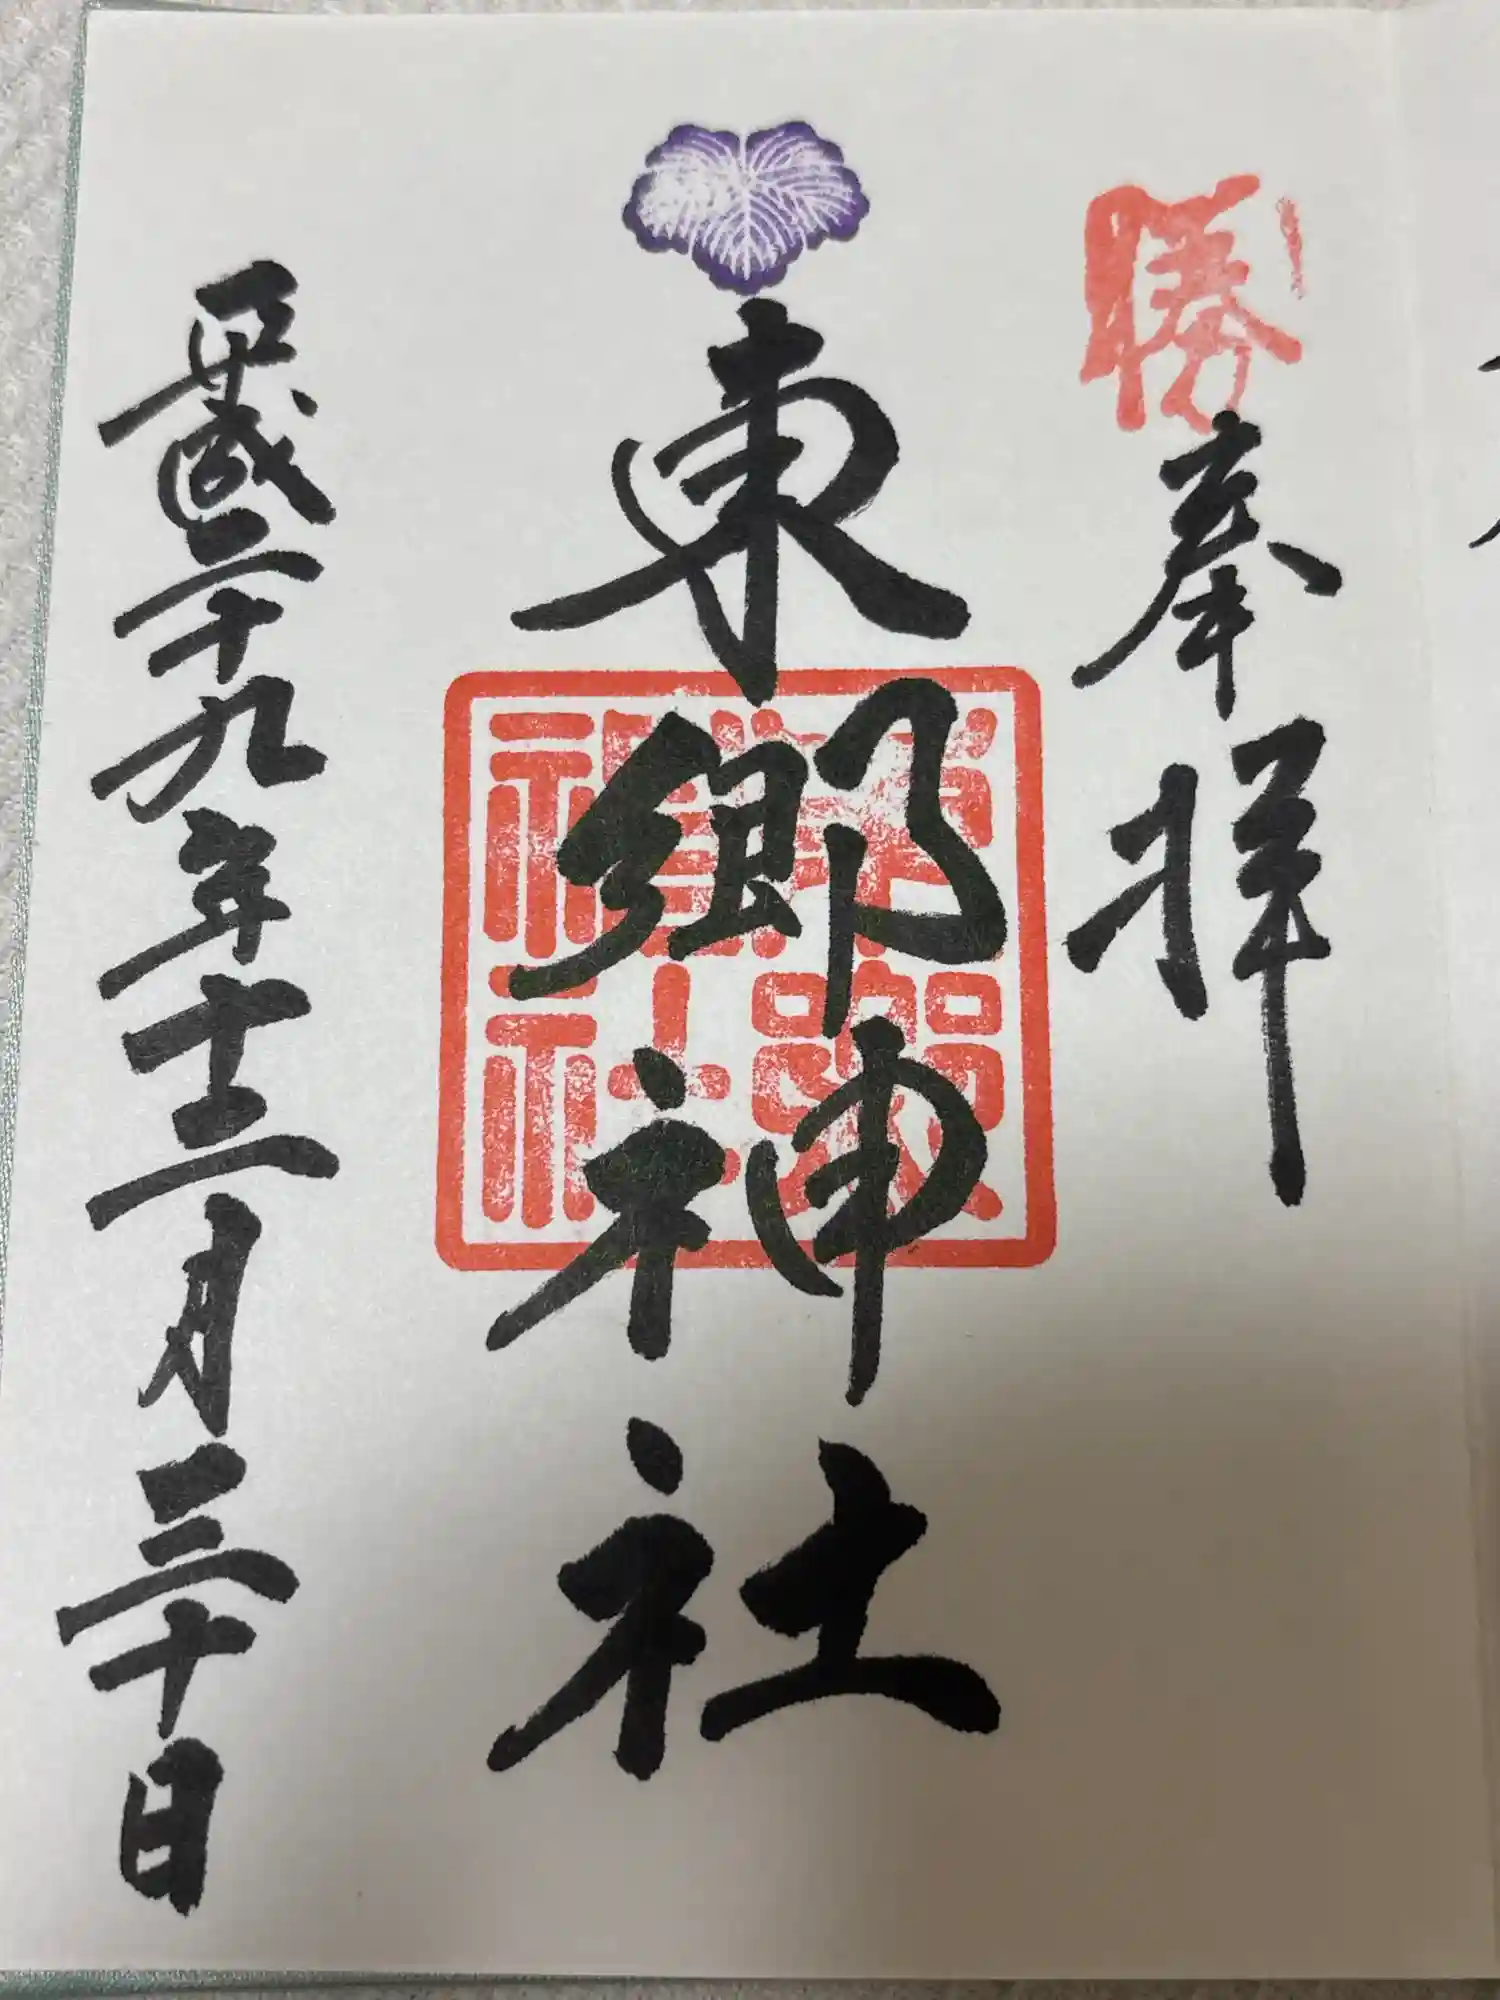 勝
奉拝
東郷神社
平成二十九年十二月三十日